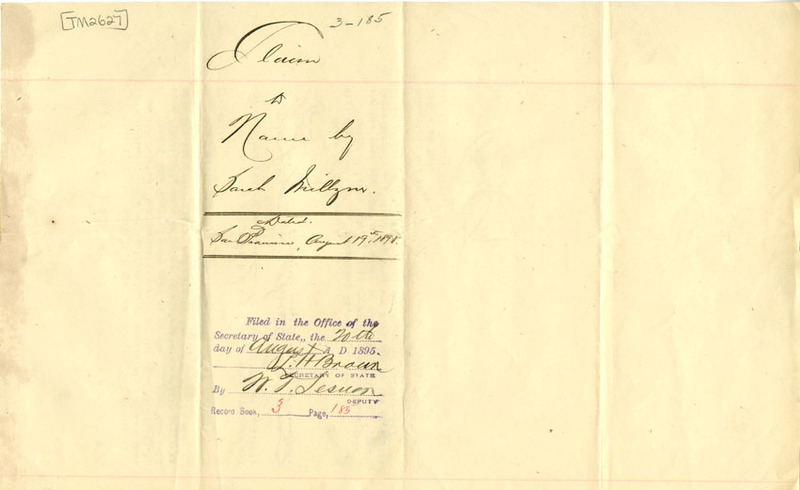 [TM2627]
3-185
Claim
to
Name by
Sarah Millzner.
Dated.
San Francisco, August 19th, 1895.
Filed in the Office of the
Secretary of State,, the 20th
day of August A D 1895.
L. H. Brown
SECRETARY OF STATE
By W. T. Sesnon
DEPUTY
Record Book, 3 Page, 185